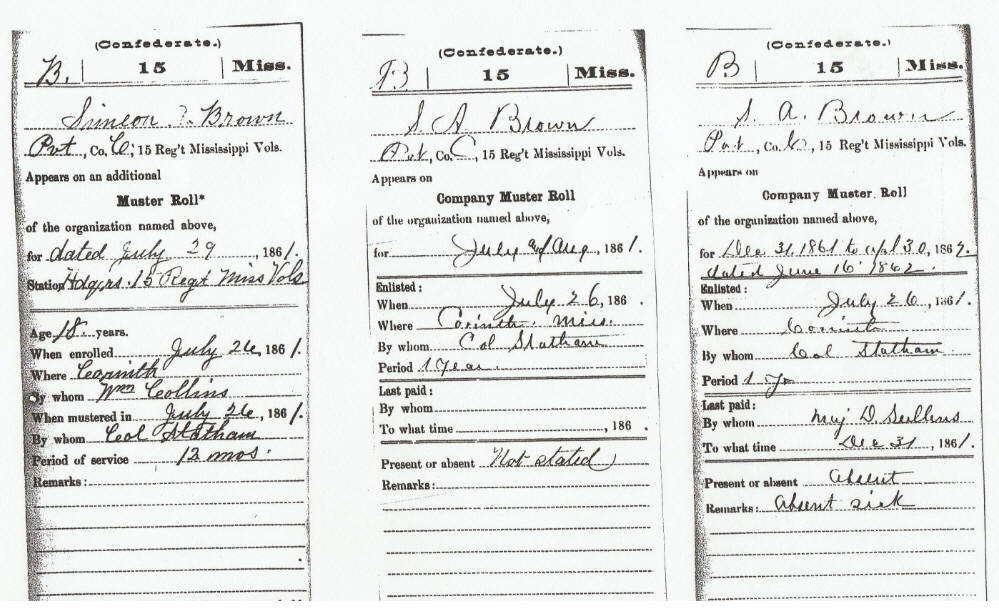 (Confederate.)
B. | 15 | Miss.
Simeon ? Brown
Pvt, Co. C; 15 Reg't Mississippi Vols.
Appears on an additional
Muster Roll*
of the organization named above,
for dated July 29, 1861.
Station Hdqrs. 15 Regt Miss Vols
Age 18 years.
When enrolled July 26, 1861.
Where Corinth
By whom Wm Collins
When mustered in July 26, 1861.
By whom Col Statham
Period of service 12 mos.
Remarks:
(Confederate.)
B | 15 | Miss.
S A Brown
Pvt, Co. C, 15 Reg't Mississippi Vols.
Appears on
Company Muster Roll
of the organization named above,
for July & Aug, 1861.
Enlisted:
When July 26, 186 .
Where Corinth. Miss.
By whom Col Statham
Period 1 Year
Last paid:
By whom
To what time , 186 .
Present or absent Not stated
Remarks:
(Confederate.)
B | 15 | Miss.
S. A. Brown
Pvt, Co. C, 15 Reg't Mississippi Vols.
Appears on
Company Muster Roll
of the organization named above,
for Dec 31, 1861 to Apl 30, 1862.
dated June 16 1862.
Enlisted:
When July 26, 1861.
Where Corinth
By whom Col Statham
Period 1 Yr
Last paid:
By whom Maj D.
To what time Dec 31, 1861.
Present or absent Absent
Remarks: Absent sick